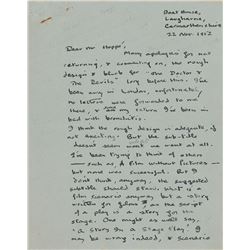 Boat House,
Laugharne,
Carmarthenshire
22 Nov. 1952
Dear Mr Hopps,
Many apologies for not
returning, & commenting on, the rough
design & blurb for 'The Doctor &
The Devils' long before this. I've
been away in London, unfortunately
no letters were forwarded to me
there, & on my return I've been in
bed with bronchitis.
I think the rough design is adequate, if
not exciting. But the sub-title
doesn't seem what we want at all.
I've been trying to think of others
— such as A Film without Pictures —
but none was successful. But I
don't think, anyway, the suggested
subtitle should stand. What is a
film scenario anyway but a story
written for films? as the script
of a play is a story for the
stage. One might as well say
'a story in a stage play'. I
may be wrong indeed, & scenario